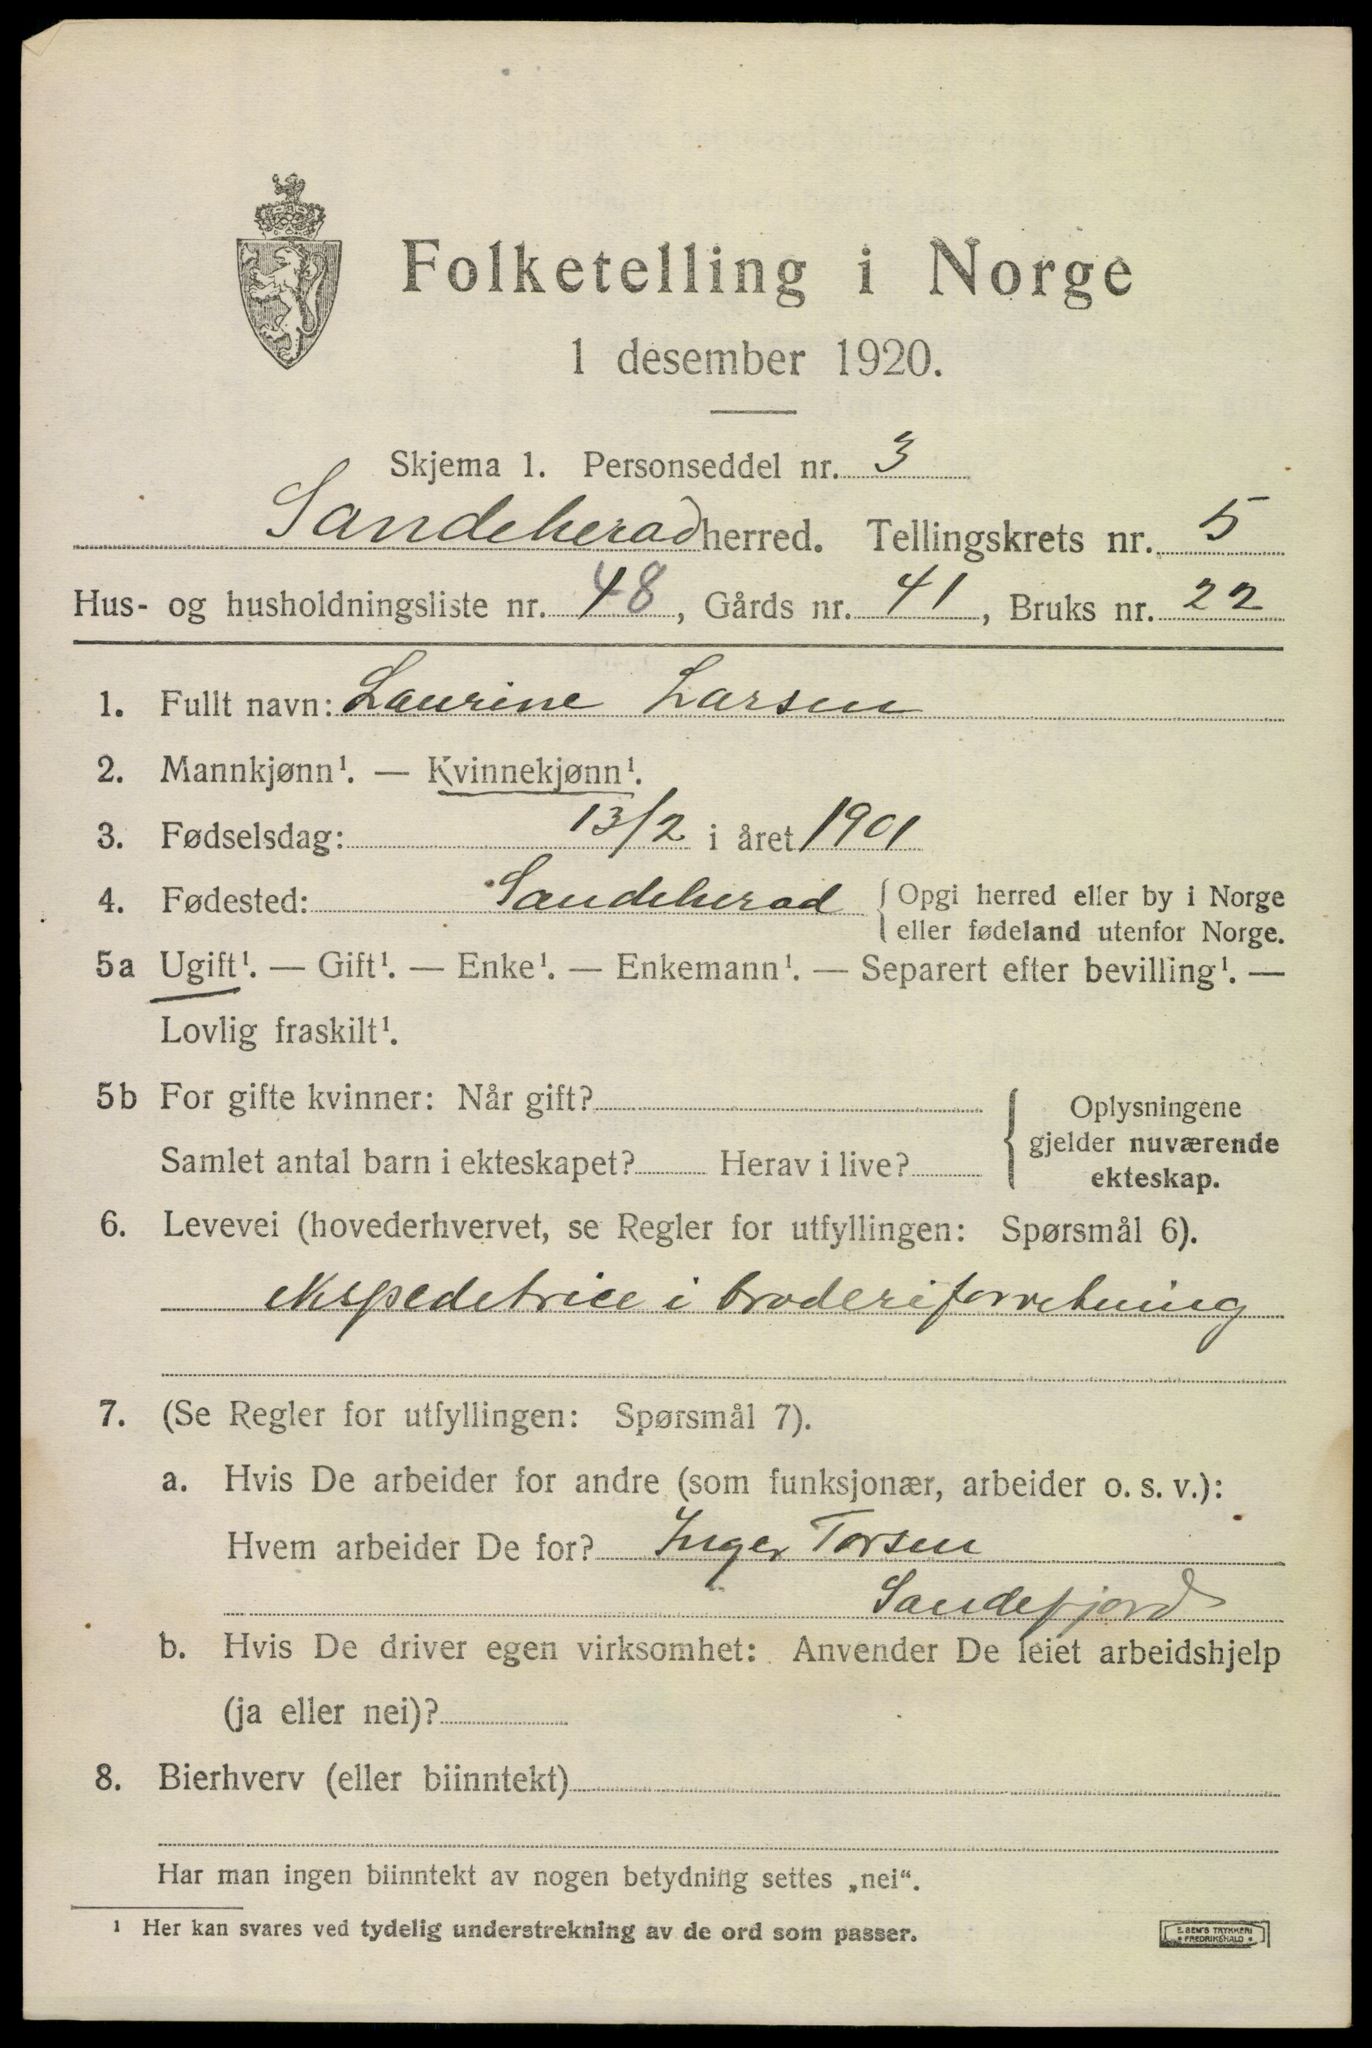 Folketelling i Norge
1 desember 1920.
Skjema 1. Personseddel nr. 3
Sandeherad herred. Tellingskrets nr. 5
Hus- og husholdningsliste nr. 48, Gårds nr. 41, Bruks nr. 22
1. Fullt navn: Laurine Larsen
2. Mannkjønn¹. — Kvinnekjønn¹.
3. Fødselsdag: 13/2 i året 1901
4. Fødested: Sandeherad { Opgi herred eller by i Norge
eller fødeland utenfor Norge.
5a Ugift¹. — Gift¹. — Enke¹. — Enkemann¹. — Separert efter bevilling¹. —
Lovlig fraskilt¹.
5b For gifte kvinner: Når gift?
Samlet antal barn i ekteskapet? Herav i live?
Oplysningene
gjelder nuværende
ekteskap.
6. Levevei (hovederhvervet, se Regler for utfyllingen: Spørsmål 6).
ekspedetrice i broderiforretning
7. (Se Regler for utfyllingen: Spørsmål 7).
a. Hvis De arbeider for andre (som funksjonær, arbeider o. s. v.):
Hvem arbeider De for? Inger Torsen
Sandefjord
b. Hvis De driver egen virksomhet: Anvender De leiet arbeidshjelp
(ja eller nei)?
8. Bierhverv (eller biinntekt)
Har man ingen biinntekt av nogen betydning settes „nei“.
¹ Her kan svares ved tydelig understrekning av de ord som passer.
E. SEM'S TRYKKERI
FREDRIKSHALD